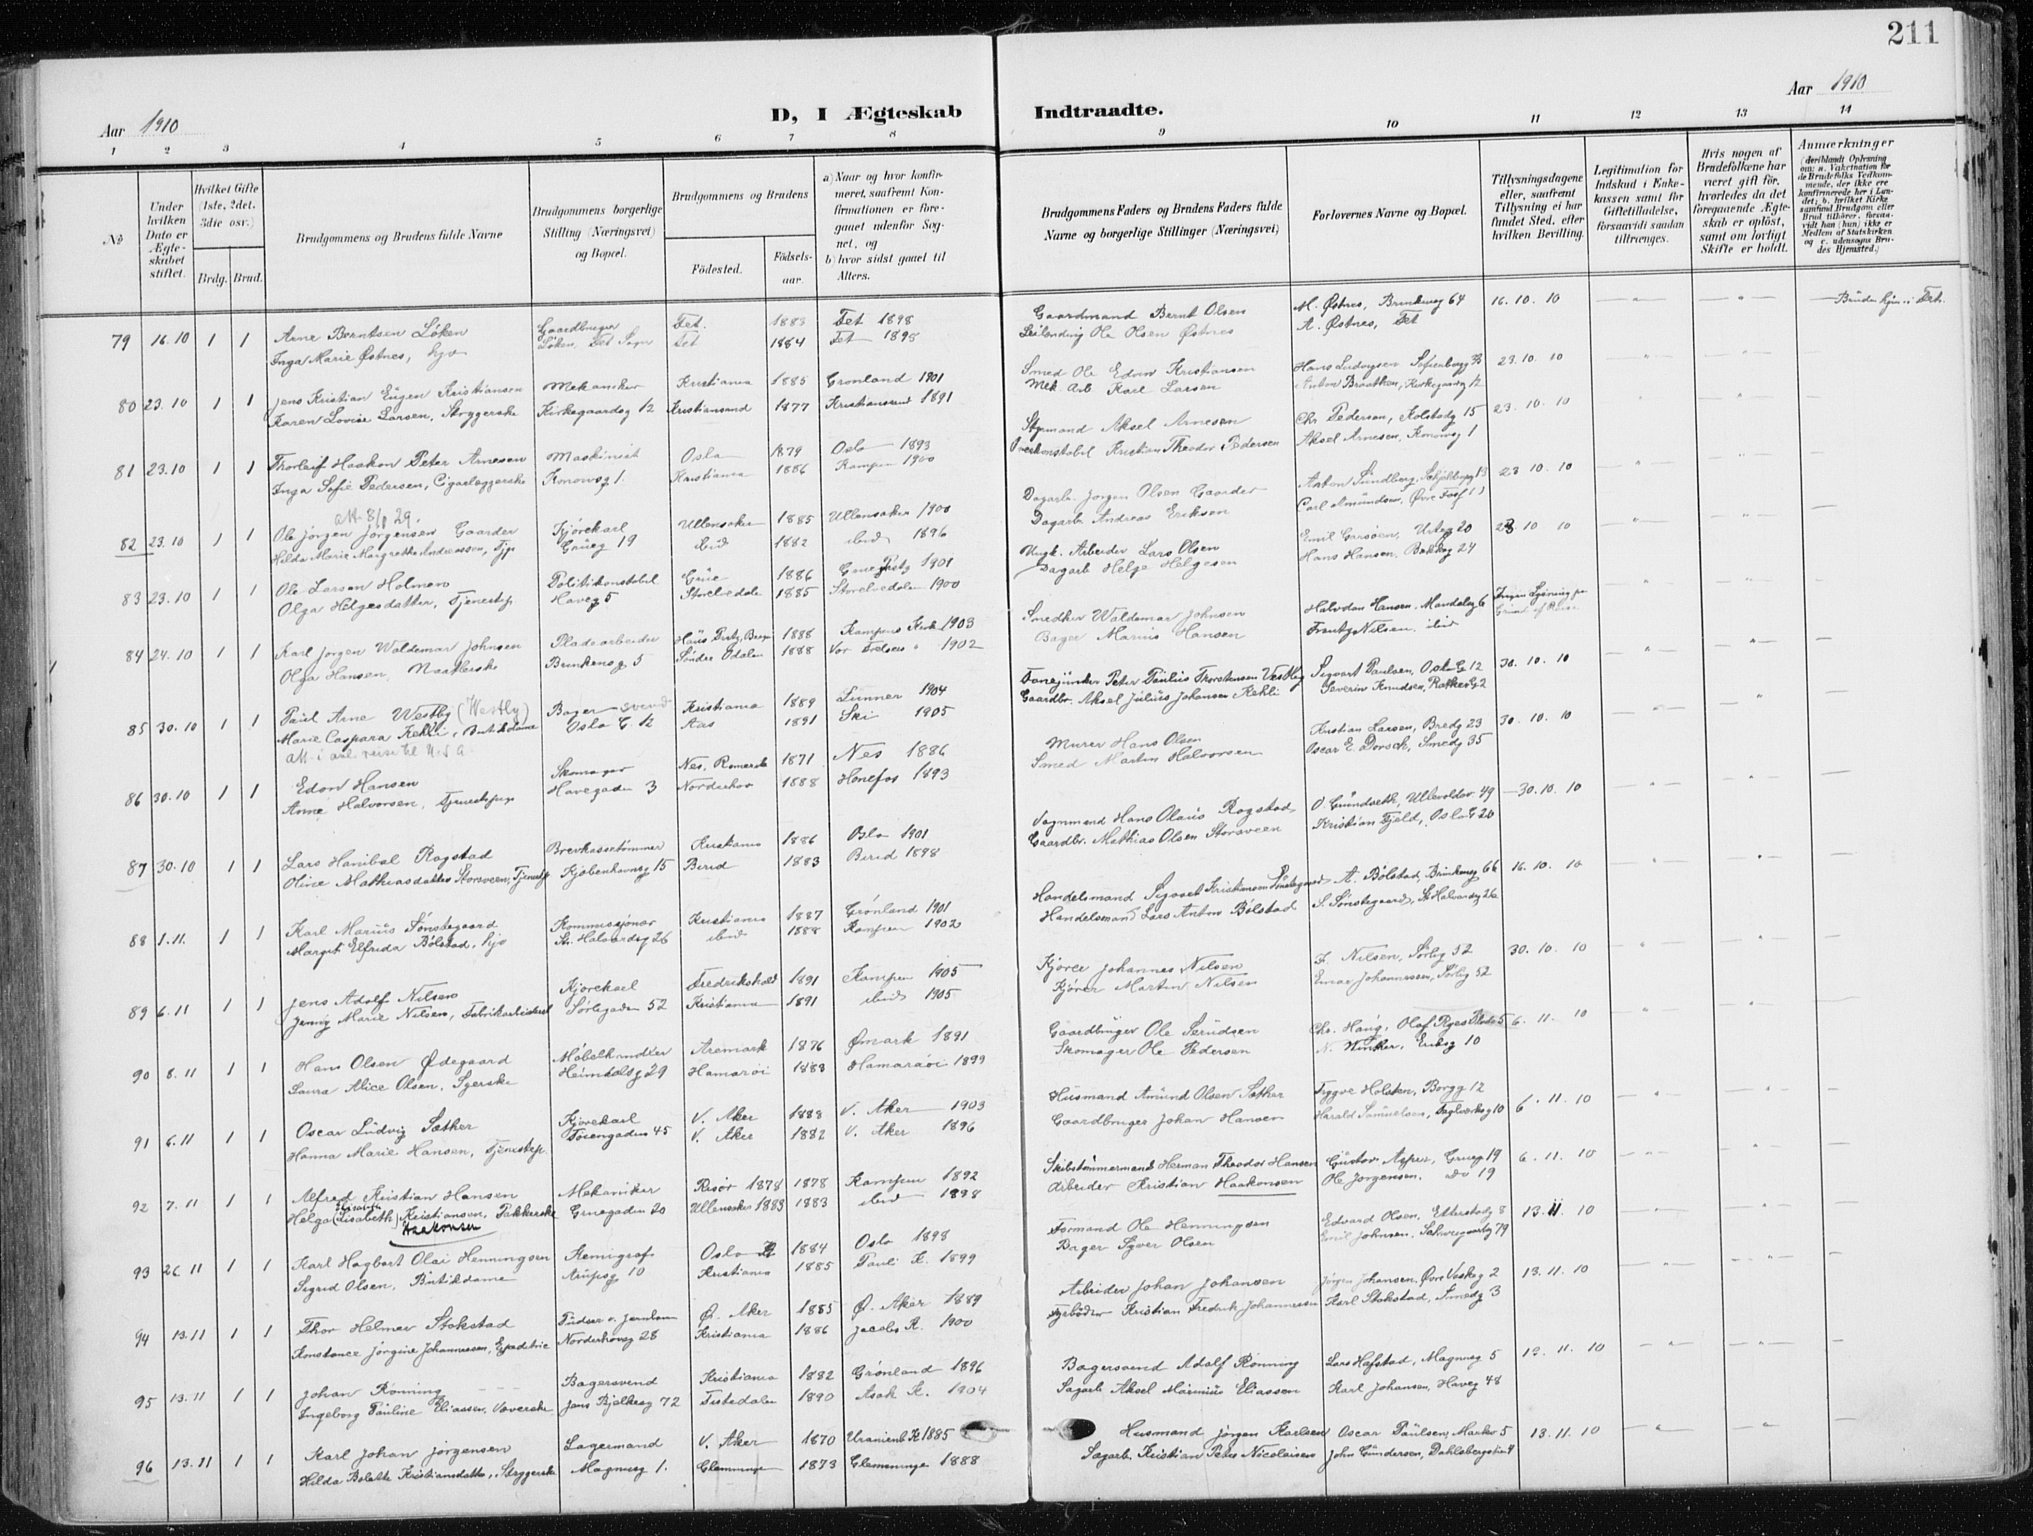 211
Aar 1910
D, I Ægteskab Indtraadte.
Aar 1910
1 2 3 4 5 6 7 8 9 10 11 12 13 14
No
Under hvilken Dato er Ægteskabet stiftet.
Hvilket Gifte (1ste, 2det, 3die osv.)
Brdg. Brud.
Brudgommens og Brudens fulde Navne
Brudgommens borgerlige Stilling (Næringsvei) og Bopæl.
Brudgommens og Brudens
Fødested. Fødselsaar.
a) Naar og hvor konfirmeret, saafremt Konfirmationen er foregaaet udenfor Sognet, og
b) hvor sidst gaaet til Alters.
Brudgommens Faders og Brudens Faders fulde Navne og borgerlige Stillinger (Næringsvei)
Forlovernes Navne og Bopæl.
Tillysningsdagene eller, saafremt Tillysning ei har fundet Sted, efter hvilken Bevilling.
Legitimation for Indskud i Enkekassen samt for Giftetilladelse, forsaavidt saadan tiltrænges.
Hvis nogen af Brudefolkene har været gift før, hvorledes da det foregaaende Ægteskab er opløst, samt om lovligt Skifte er holdt.
Anmærkninger
79 16.10 1 1 Arne Berntsen Løken Gaardbruger Fet. 1883 Fet 1898 Gaardmand Bernt Olsen M. Østnes, Brinkenveg 64 16.10.10
Inga Marie Østnes, hjv Løken, Fet Sogn Fet 1884 Fet 1898 Leilending Ole Olsen Østnes A. Østnes, Fet
80 23.10 1 1 Jens Kristian Eugen Kristiansen Mekaniker Kristiania 1885 Grønland 1901 Smed Ole Edvin Kristiansen Hans Ludvigsen 23.10.10
Karen Lovise Larsen, Strygerske Kirkegaardsg 12 Kristiansund 1877 Kristiansund 1891 Mek Arb Karl Larsen Anton Braathen, Kirkegaardg 12
81 23.10 1 1 Thorleif Haakon Peter Arnesen Maskinist Oslo 1879 Oslo 1893 Styrmand Aksel Arnesen Chr Pedersen, Kolstadg 15 23.10.10
Inga Sofie Pedersen, Cigarlæggerske Konowsg 1. Kristiania 1886 Kampen 1900 Overkonstabel Kristian Theodor Pedersen Aksel Arnesen, Konowsg 1
82 23.10 1 1 Ole Jørgen Jørgensen Gaarder Kjørekarl Ullensaker 1885 Ullensaker 1900 Dagarb. Jørgen Olsen Gaarder Anton Sundberg 23.10.10
Hilda Marie Margrethe Andreassen, Tjp Grueg 19 ibid 1882 ibid 1896 Dagarb Andreas Eriksen Carl Amundsen
83 23.10 1 1 Ole Larsen Holmen Politikonstabel Grue 1886 Grue 1901 Arbeider Lars Olsen Emil Garsøen, Urteg 20 23.10 10
Olga Helgesdatter, Tjenestep Haveg 5 Storelvedalen 1885 Storelvedalen 1900 Dagarb Helge Helgesen Hans Hansen, Bakkeg 24
84 24.10 1 1 Karl Jørgen Waldemar Johnsen Pladsarbeider 1888 Kampens Kirk 1903 Smedker Waldemar Johnsen Halvdan Hansen, Mandalsg 6
Olga Hansen, Maatlerske Brinkensg 5 Søndre Odalen 1888 Vor Frelsers 1902 Bager Marius Hansen Frentz Nilsen, ibid
85 30.10 1 1 Paul Arne Westby (Westly) Bagersvend Kristiania 1889 Lunner 1904 Fanejunker Peter Paulus Thorstensen Westby Sigvart Paulsen, Oslo G 12 30.10.10
Marie Caspara Kehli, Butikdame Oslo G 12 Aas 1891 Ski 1905 Gaardbr. Aksel Julius Johansen Kehli Severin Knudsen, Rathkesg 2
86 30.10 1 1 Edon Hansen Skomager Nes, Romerike 1871 Nes 1886 Murer Hans Olsen Kristian Larsen, Bredg 23 30.10.10
Anne Halvorsen, Tjenestepige Havegaden 3 Norderhov 1888 Hønefos 1893 Smed Martin Halvorsen Oscar E. Dorsch, Smedg 35
87 30.10 1 1 Lars Hanibal Rogstad Brevkassetømmer Kristiania 1886 Oslo 1901 Vognmand Hans Olaus Rogstad O. Gundseth, Ullevoldsv 49 30.10.10
Oline Mathiasdatter Storsveen, Tjenestp Kjøbenhavnsg 15 Birid 1883 Birid 1898 Gaardbr. Mathias Olsen Storsveen Kristian Fjeld, Oslo G 20
88 1.11. 1 1 Karl Marius Sønstegaard Kommissjonær Kristiania 1887 Grønland 1901 Handelsmand Sigvart Kristiansen Sønstegaard A. Bølstad, Brinkenvg 66 16.10.10
Margit Elfrida Bølstad, hjv St. Halvardsg 26 ibid 1888 Kampen 1902 Handelsmand Lars Anton Bølstad S. Sønstegaard, St Halvardsg 26
89 6.11 1 1 Jens Adolf Nilsen Kjørekarl Fredrikshald 1891 Kampen 1905 Kjører Johannes Nilsen F. Nilsen, Sørlig 52 30.10.10
Jenny Marie Nilsen, Fabrikarbeiderske Sørlegaden 52 Kristiania 1891 ibid 1905 Kjører Martin Nilsen Einar Johannessen, Sørlig 52
90 6.11 1 1 Hans Olsen Ødegaard Møbelhandler Aremark 1876 Ømark 1891 Gaardbruger Ole Chr. Haug, Olaf Ryes Plads 5 6.11.10
Laura Alice Olsen, Syerske Heimdalsg 29 Hamarøi 1883 Hamarøi 1899 Skomager Ole Pedersen N. Winther, Eriksg 10
91 6.11 1 1 Oscar Ludvig Sæther Kjørekarl V. Aker 1888 V. Aker 1903 Husmand Amund Olsen Sæther Tryggve Holsten, Borgg 12 6.11.10
Hanna Marie Hansen, Tjenestep Tøiengaden 45 V. Aker 1882 V. Aker 1896 Gaardbruger Johan Hansen Harald Samuelsen, Teglverksg 10
92 7.11 1 1 Alfred Kristian Hansen Mekaniker Risør 1878 1878 Kampen 1892 Skibstømmermand Herman Theodor Hansen Gustav Aspen, Grueg 19 6.11.10
Helga (Elisabeth) Kristiansen, Pakkerske Gruegaden 20 Ullensaker 1883 1883 ibid 1898 Arbeider Kristian Haakonsen Ole Jørgensen. Do 19
Haakonsen
93 26.11 1 1 Karl Hagbart Olai Henningsen Kemigraf Oslo 1884 Oslo 1898 Formand Ole Henningsen Edvard Olsen, Etterstadg 8 13.11.10
Sigrid Olsen, Butikdame Arupsg 10 Kristiania 1885 Pauli K. 1899 Bager Syver Olsen Emil Johnsen, Schweigaardsg 79
94 13.11 1 1 Thor Helmer Stokstad Pudser v. Jernbanen Ø. Aker 1885 Ø. Aker 1889 Arbeider Johan Johansen Jørgen Johansen, Øvre Vaskeg 2 13.11.10
Konstance Jørgine Johannessen, Expeditrie Norderhovsg 28 Kristiania 1886 Jacobs K. 1900 Fyrbøder Kristian Fredrik Johannessen Karl Stokstad, Smedg 3
95 13.11 1 1 Johan Rønning Bagersvend Kristiania 1882 Grønland 1896 Bagersvend Adolf Rønning Lars Hafstad, Magnusg 5 12.11.10
Ingeborg Pauline Eliassen, Væverske Jens Bjelkesg 72 Tistedalen 1890 Asak K. 1904 Sagarb Aksel Marinius Eliassen Karl Johansen, Haveg 48
96 13.11 1 1 Karl Johan Jørgensen Lagermand V. Aker 1870 Uranienb K 1885 Husmand Jørgen Karlsen Oscar Paulsen, Markv 5 13.11.10
Hilda Bolette Kristiansdatter, Strygerske Magnusg 1. Glemminge 1873 Glemminge 1888 Sagarb. Kristian Peter Nicolaisen John Gundersen, Dahlsbergstien 4